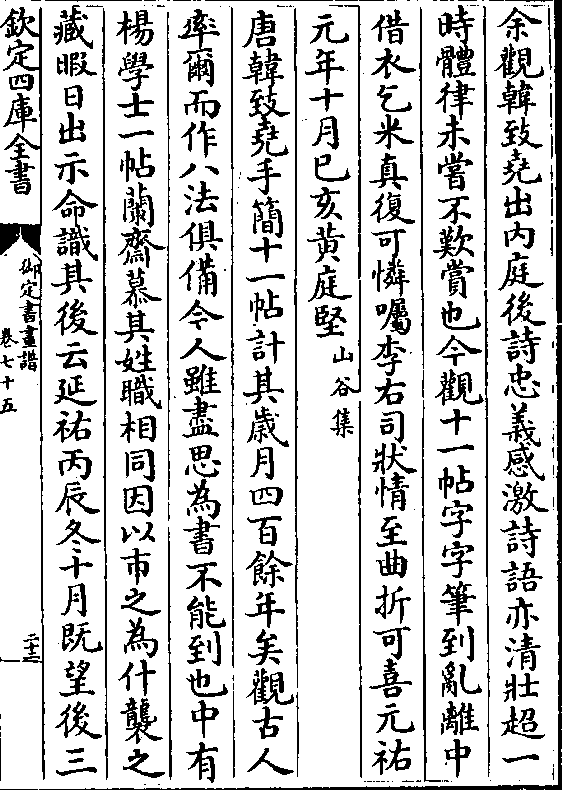 余觀韓致堯出内庭後詩忠義感激詩語亦清壯超一
時體律未嘗不歎賞也今觀十一帖字字筆到亂離中
借衣乞米真復可憐囑李右司狀情至曲折可喜元祐
元年十月己亥黄庭堅山谷集
唐韓致堯手簡十一帖計其歳月四百餘年矣觀古人
率爾而作八法俱備今人雖盡思為書不能到也中有
楊學士一帖蘭齋慕其姓職相同因以市之為什襲之
藏暇日出示命識其後云延祐丙辰冬十月既望後三
欽定四庫全書
御定書畫譜
卷七十五
二十三